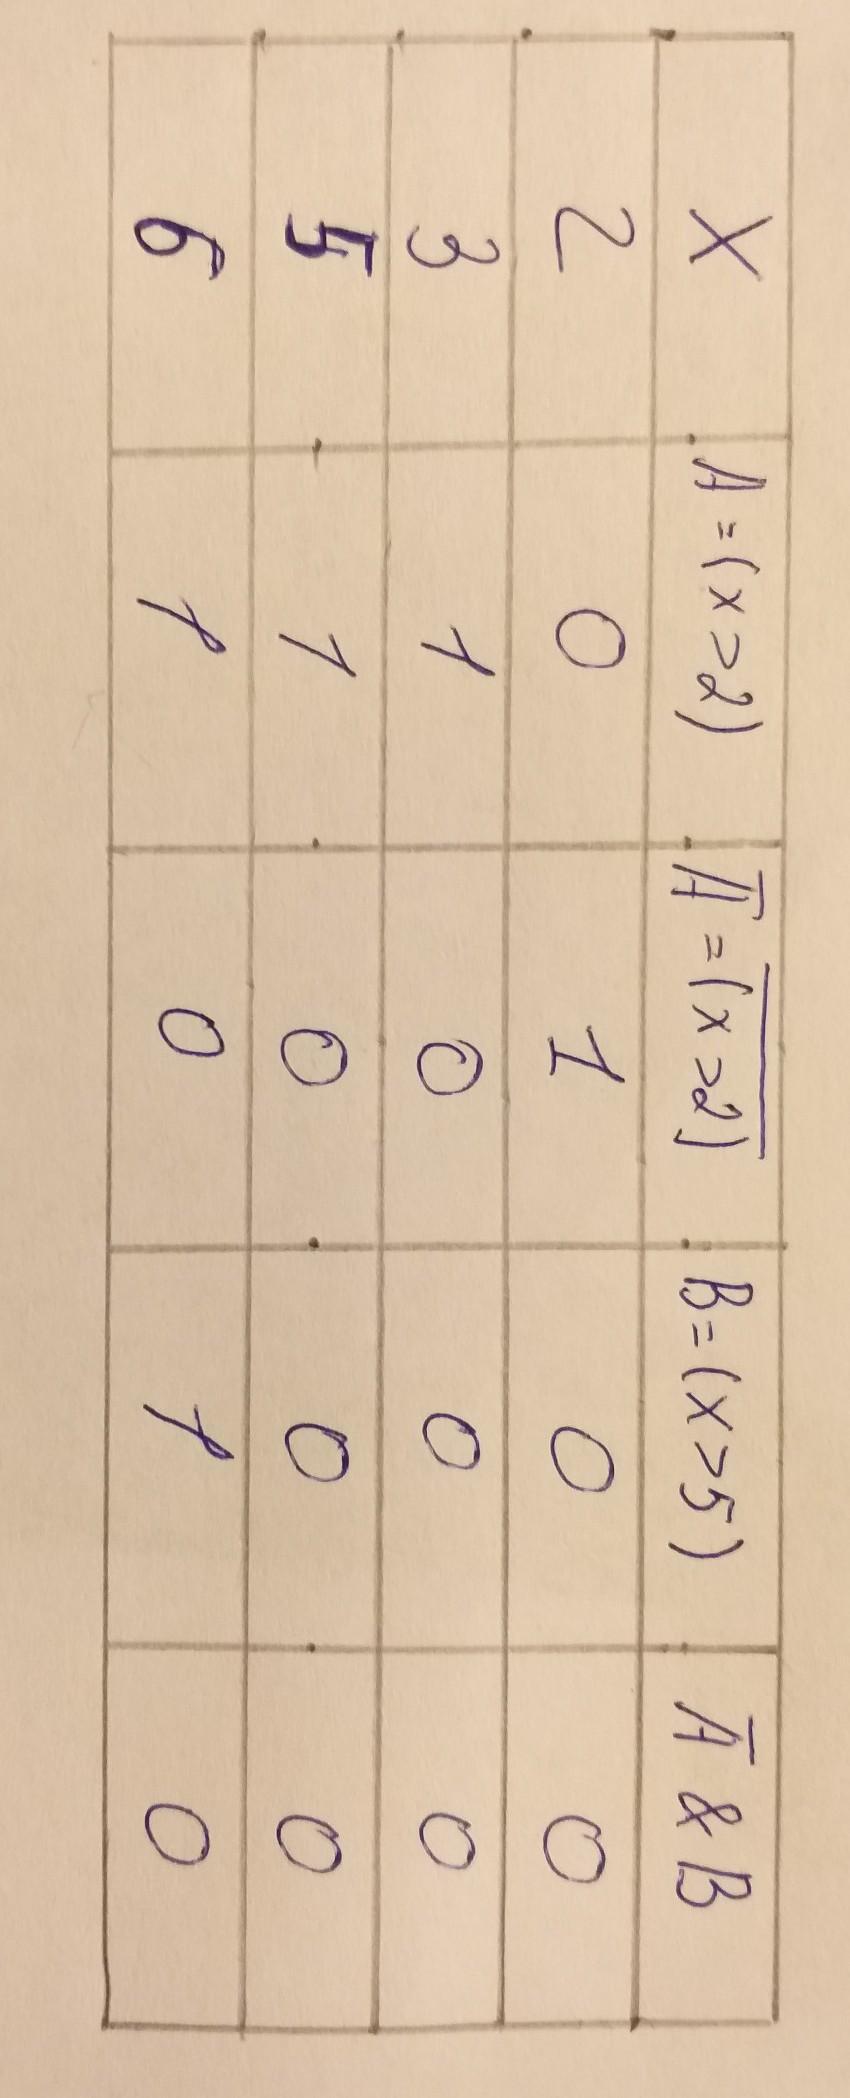 X A = (x > 2) A̅ = (̅x̅ ̅>̅ ̅2̅)̅ B = (x > 5) A̅ & B
2 0 1 0 0
3 1 0 0 0
5 1 0 0 0
6 1 0 1 0